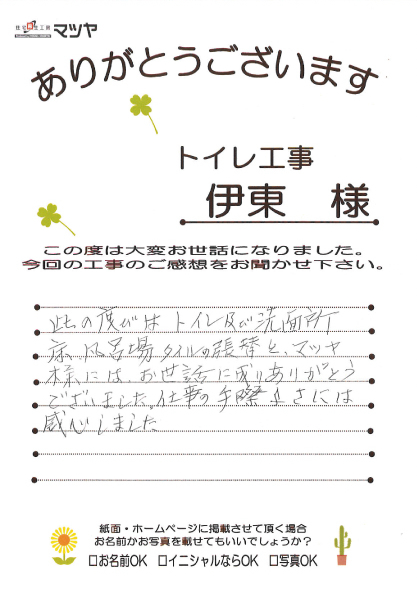 マツヤ
ありがとうございます
トイレ工事
伊東 様
この度は大変お世話になりました。
今回の工事のご感想をお聞かせ下さい。
此の度びは トイレ及び洗面所
床、風呂場タイルの張替と、マツヤ
様には、お世話に成りありがとう
ございました。仕事の手際よさには
感心しました
紙面・ホームページに掲載させて頂く場合
お名前かお写真を載せてもいいでしょうか?
□お名前OK □イニシャルならOK □写真OK